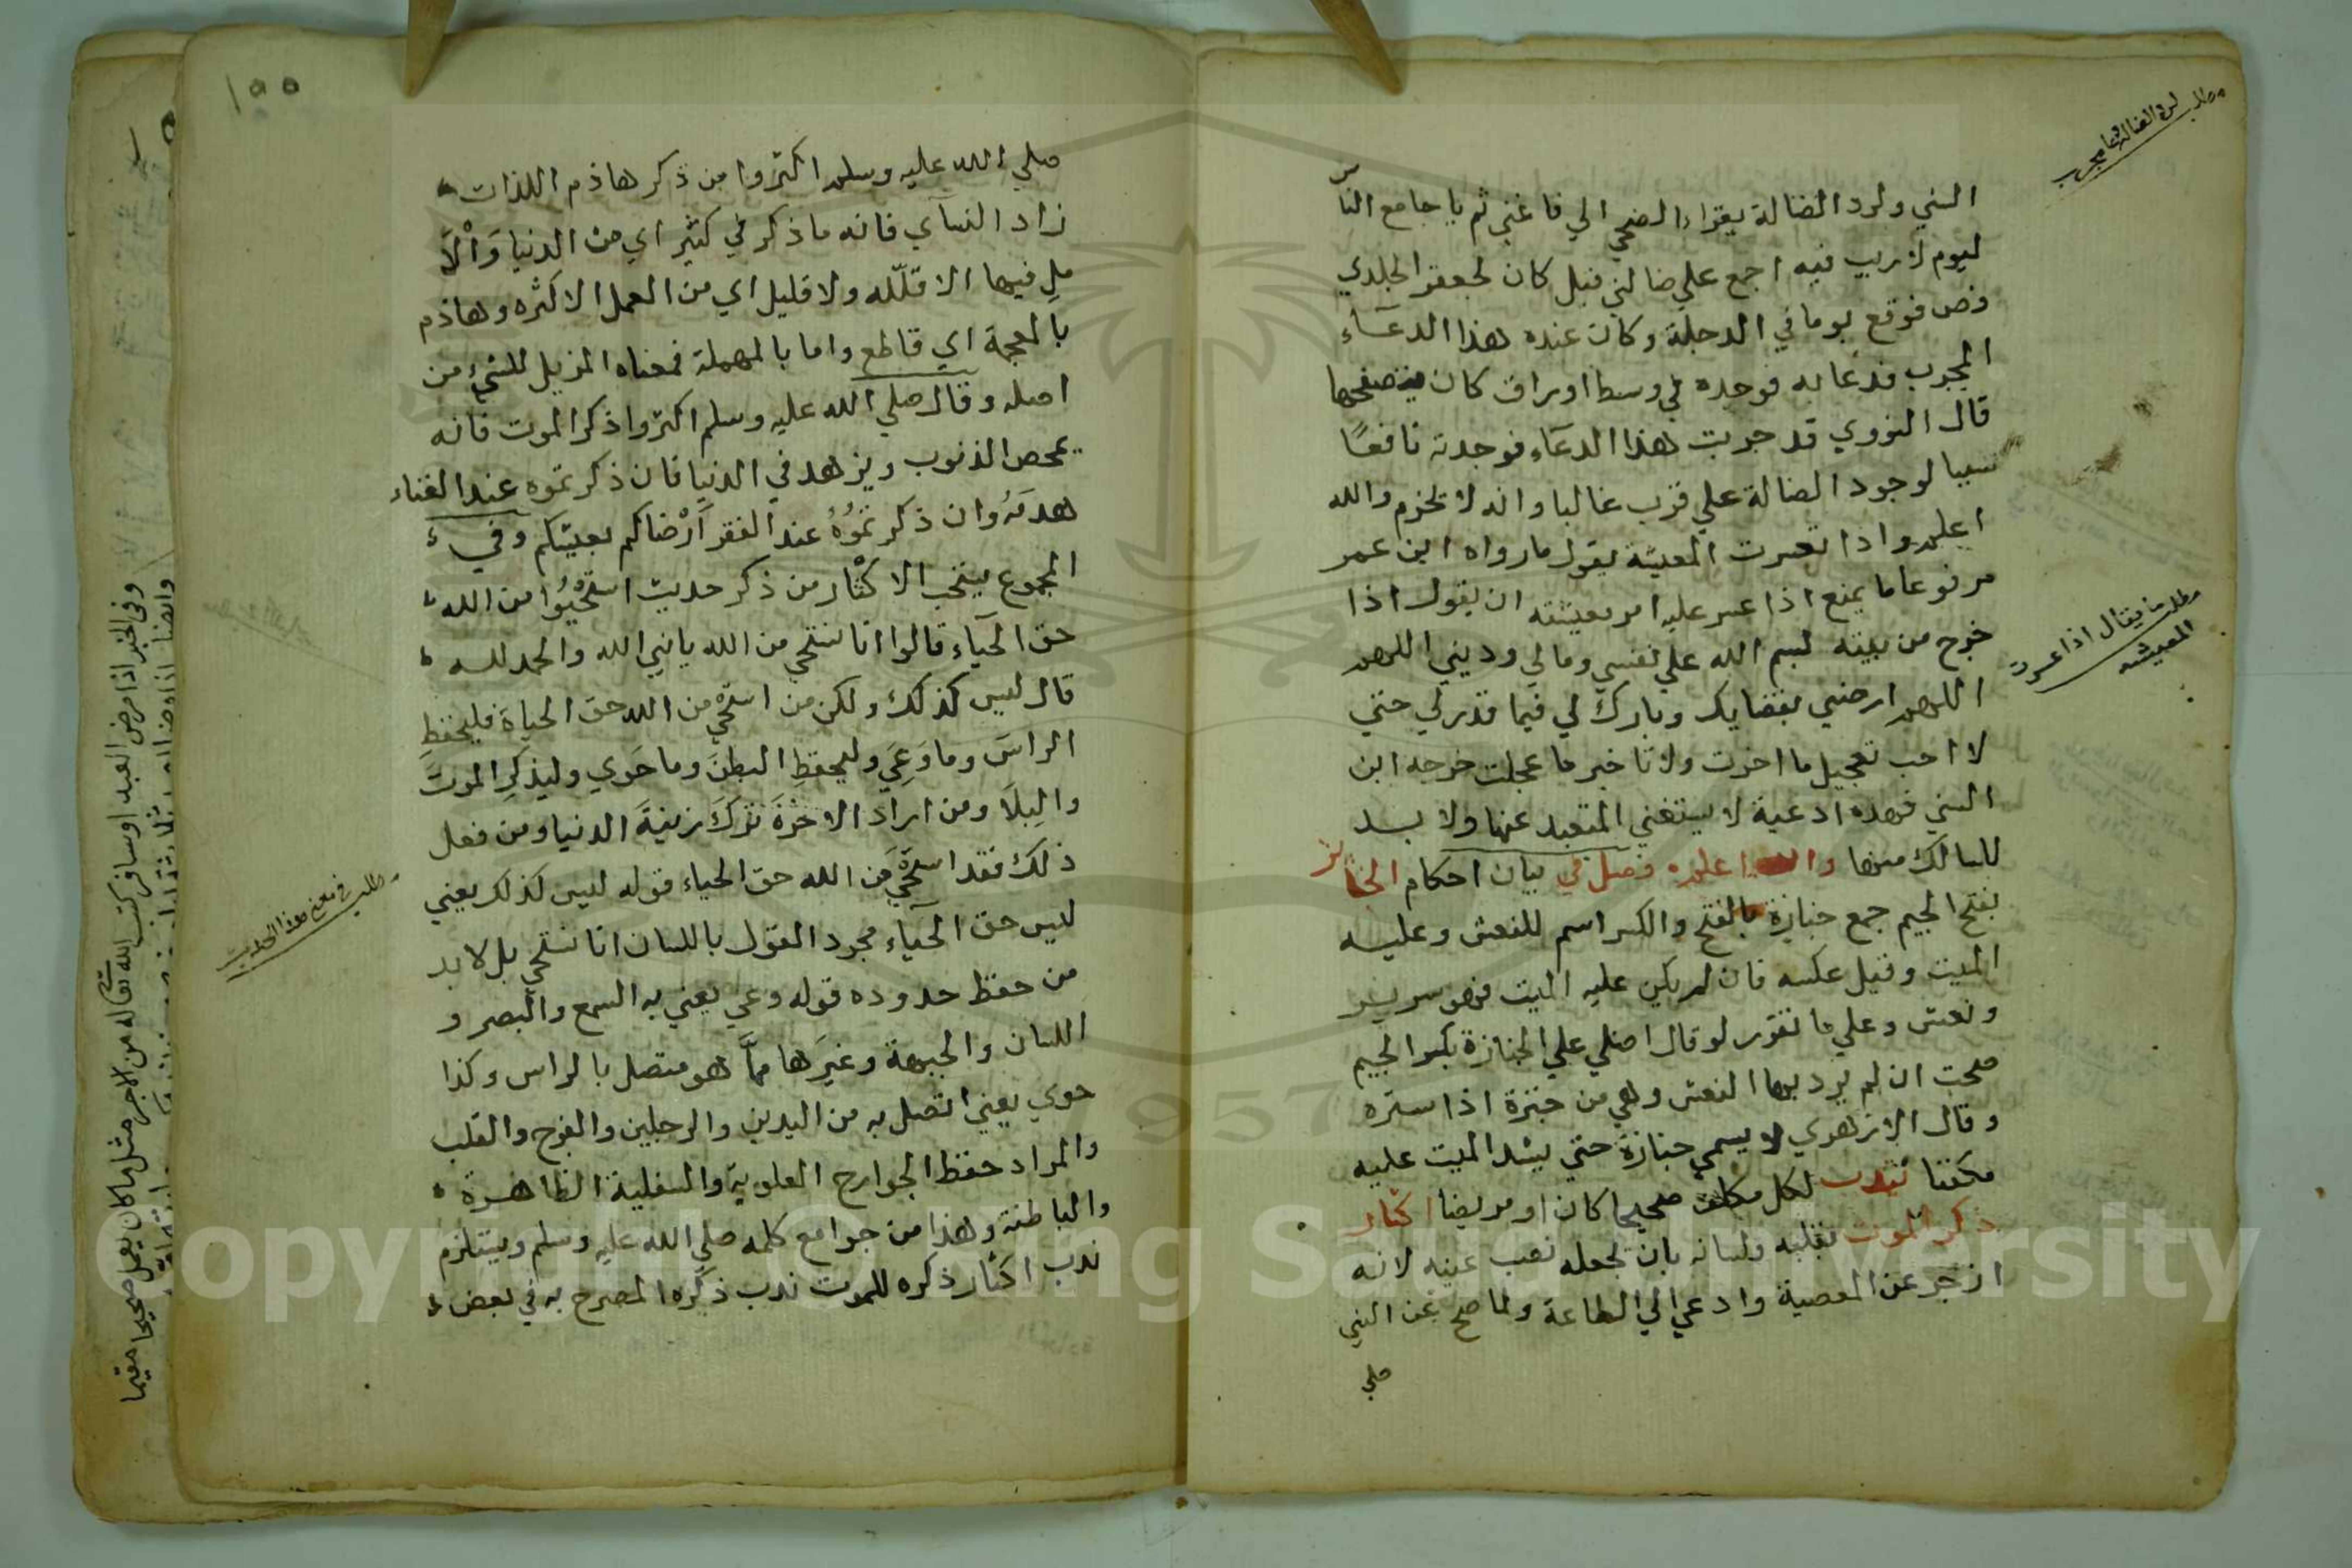 مطلب لرد الضالة وما مجرب
السني ولرد الضالة يقراء الضحي الي فاغني ثم يا جامع الناس
ليوم لا ريب فيه اجمع علي ضالتي قيل كان لجعفر الخلدي
فص فوقع يوما في الدجلة وكان عنده هذا الدعآء
المجرب فدعا به فوجده في وسط اوراق كان يتصفحها
قال النووي قد جربت هذا الدعاء فوجدته نافعًا
سببا لوجود الضالة علي قرب غالبا وانه لا يخرم والله
اعلم واذا تعسرت المعيشة يقول ما رواه ابن عمر
مرفوعا ما يمنع اذا عسر عليه امر معيشته ان يقول اذا
مطلب ما يقال اذا عسرت
المعيشه
خرج من بيته بسم الله علي نفسي ومالي وديني اللهم
اللهم ارضني بقضايك وبارك لي فيما قدر لي حتي
لا احب تعجيل ما اخرت ولا تاخير ما عجلت خرجه ابن
السني فهذه ادعية لا يستغني المتعبد عنها ولا بد
للسالك منها والله اعلم فصل في بيان احكام الجنائز
بفتح الجيم جمع جنازة بالفتح والكسر اسم للنعش وعليه
الميت وقيل عكسه فان لم يكن عليه الميت فهو سرير
ونعش وعلي ما تقرر لو قال اصلي علي الجنازة بكسر الجيم
صحت ان لم يرد بها النعش وهي من جنزة اذا ستره
وقال الازهري لا يسمي جنازة حتي يشد الميت عليه
مكفنا تندب لكل مكلف صحيحا كان او مريضا اكثار
ذكر الموت بقلبه ولسانه بان يجعله نصب عينه لانه
ازجر عن المعصية وادعي الي الطاعة ولما صح عن النبي
صلي
١٥٥
صلي الله عليه وسلم اكثروا من ذكر هاذم اللذات
زاد النسآي فانه ما ذكر في كثير اي من الدنيا وَالْآ
مل فيها الا قلّله ولا قليل اي من العمل الا كثره وهاذم
بالمعجمة اي قاطع واما بالمهملة فمعناه المزيل للشيء من
اصله وقال صلي الله عليه وسلم اكثروا ذكر الموت فانه
يمحص الذنوب ويزهد في الدنيا فان ذكرتموه عند الغناء
هدمَهُ وان ذكرتمُوُهُ عند الفقر اَرْضاكم بعيشكم وفي
المجموع يستحب الاكْثار من ذكر حديث استحْيُوُا من الله
حق الحيآء قالوا انا نستحي من الله يا نبي الله والحمد لله
قال ليس كذلك ولكن من استحْي من الله حق الحياة فليحفظِ
الراسَ وما وَعَيَ وليحفظِ البطنَ وما حَوَي وليذكرِ الموتَ
والبِلَا ومن اراد الاخرَةَ تَرَكَ زينَةَ الدنيا ومن فعل
ذلك فقد استحْيَي مَن الله حق الحياء قوله ليس كذلك يعني
مطلب في معني هذا الحديث
ليس حق الحيآء مجرد القول باللسان انا نستحي بل لا بد
من حفظ حدوده قوله وعي يعني به السمع والبصر و
اللسان والجبهة وغيرَها ممَّا هو متصل بالراس وكذا
حوي يعني اتصل به من اليدين والرجلين والفرج والقلب
والمراد حفظ الجوارح العلوية والسفلية الظاهرة
والباطنة وهذا من جوامع كلمه صلي الله عليه وسلم ويستلزم
ندب اكثار ذكره للموت ندب ذكره المصرح به في بعض
وفي الخبر اذا مرض العبد او سافر كتب الله تعا له من الاجر مثل ما كان يعمل صحيحا مقيما
Copyright © King Saud University
1957